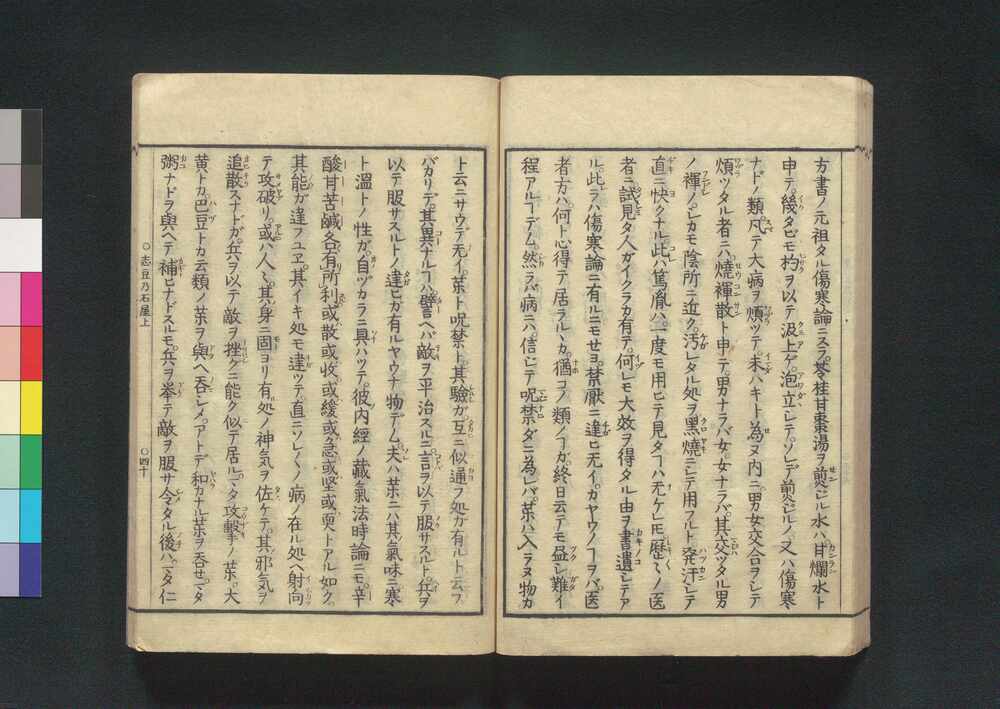 方書ノ元祖タル傷寒論ニスラ。苓桂甘棗湯ヲ煎ジル水ハ。甘爛水ト
申テ。幾タビモ杓ヲ以テ汲上ゲ。泡立シテ。ソレデ煎ジルノ。又ハ傷寒
ナドノ類。凡テ大病ヲ煩ツテ。未ハキト為ヌ内ニ。男女交合ヲシテ
煩ツタル者ニハ。燒褌散ト申テ。男ナラバ女。女ナラバ。其交ツタル男
ノ褌ノ。シカモ陰所ニ近ク。汚レタル処ヲ黒燒ニシテ用フルト。発汗シテ
直ニ快クナル。此ハ篤胤ハ。一度モ用ヒテ見タヿハ无ケレモ。歷々ノ医
者ニ。試見タ人ガイクラカ有テ。何レモ大效ヲ得タル由ヲ書遺シテア
ル。此ラハ傷寒論ニ有ルニモセヨ。禁厭ニ違ヒ无イ。カヤウノヿヲバ。医
者方ハ何ト心得テ居ラルヽカ。猶コノ類ノヿガ。終日云テモ盡シ難イ
程アルヿデム。然ラバ病ニハ。信ジテ呪禁ダニ為レバ。藥ハ入ラヌ物カ
ト云ニ。サウデ无イ。藥ト呪禁ト。其驗ガ互ニ似通フ処ガ有ルト云フ
バカリデ。其異ナルヿハ。譬ヘバ敵ヲ平治スルニ。言ヲ以テ服サスルト。兵ヲ
以テ服サスルトノ違ヒガ有ルヤウナ物デム。夫ハ藥ニハ其氣味ニ寒
ト溫トノ性ガ。自ヅカラニ具ハツテ。彼内經ノ藏氣法時論ニモ。辛
酸甘苦鹹各有所利。或散或收。或緩或急。或堅或耎トアル如ク。
其能ガ違フユヱ。其イキ処モ違ツテ。直ニソレ〳〵ノ病ノ在ル処ヘ射向
テ攻破リ。或ハ人々。其身ニ固ヨリ有ル処ノ神気ヲ佐ケテ。其邪気ヲ
追散スナドガ。兵ヲ以テ敵ヲ挫クニ能ク似テ居ル。マタ攻擊ノ藥。大
黄トカ巴豆トカ云類ノ藥ヲ與ヘ呑シメ。アトデ和カナル藥ヲ呑セ。マタ
粥ナドヲ與ヘテ補ヒナドスルモ。兵ヲ挙テ敵ヲ服サ令タル後ハ。マタ仁
○志豆乃石屋上
○四十